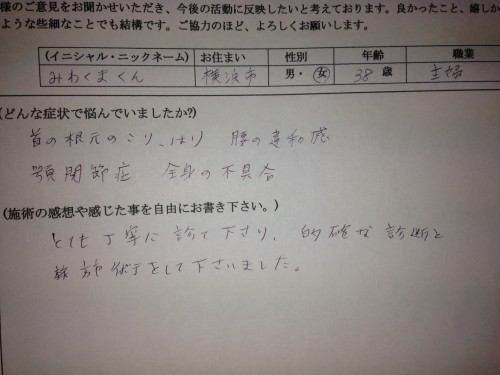 様のご意見をお聞かせいただき、今後の活動に反映したいと考えております。良かったこと、嬉しか
ような些細なことでも結構です。ご協力のほど、よろしくお願いします。
(イニシャル・ニックネーム) お住まい 性別 年齢 職業
みわくまくん 横浜市 男・女 38歳 主婦
(どんな症状で悩んでいましたか?)
首の根元のこり、はり 腰の違和感
顎関節症 全身の不具合
(施術の感想や感じた事を自由にお書き下さい。)
とても丁寧に診て下さり、的確な診断と
施術をして下さいました。